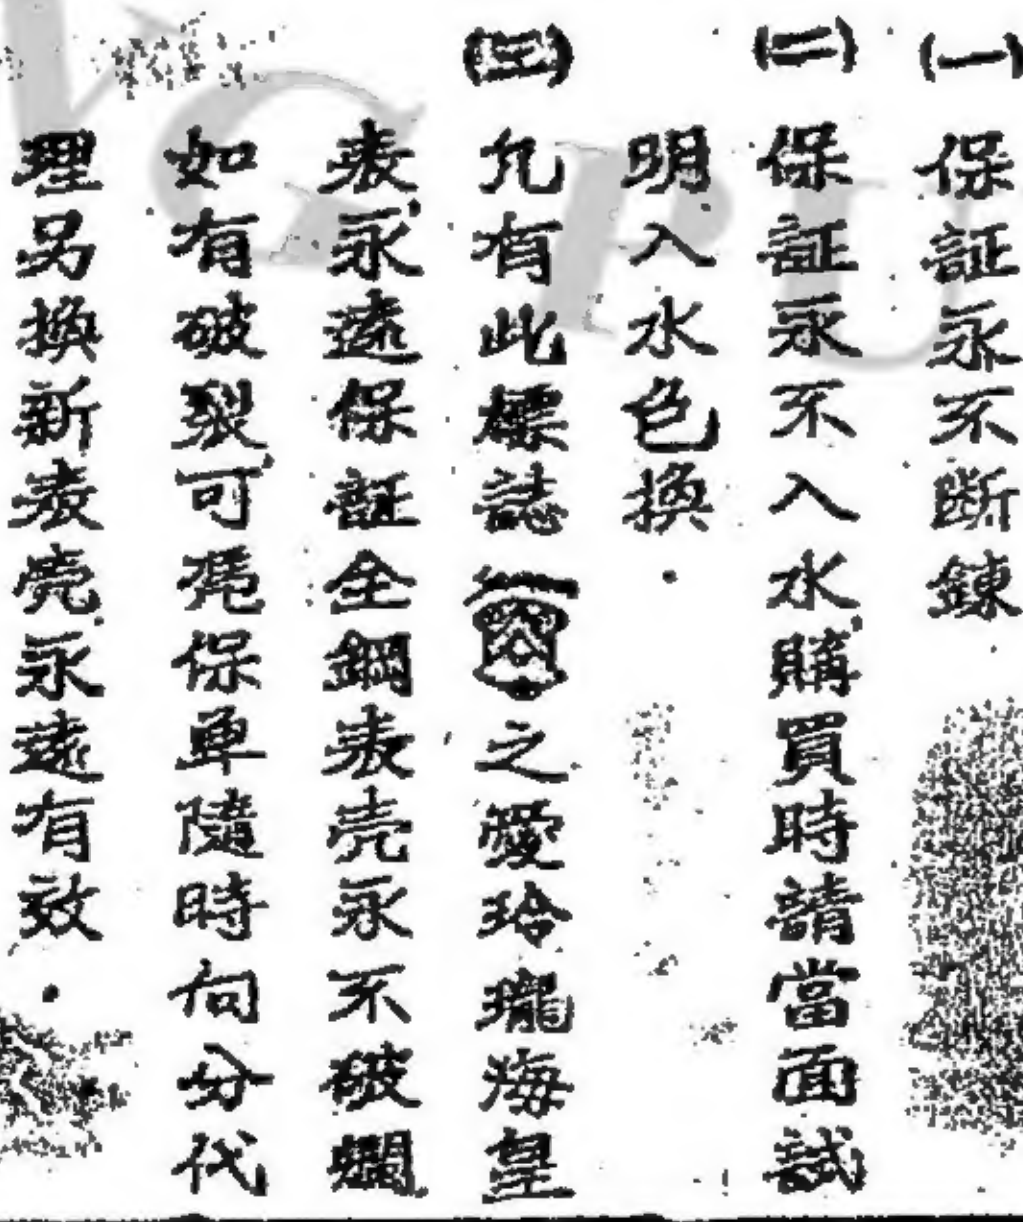 (一) 保証永不斷鍊
(二) 保証永不入水購買時請當面試
明入水色換．
(三) 凡有此標誌之愛玲瓏海皇
表永遠保証全鋼表壳永不破爛
如有破裂可凴保单隨時向分代
理另換新表壳永遠有效．